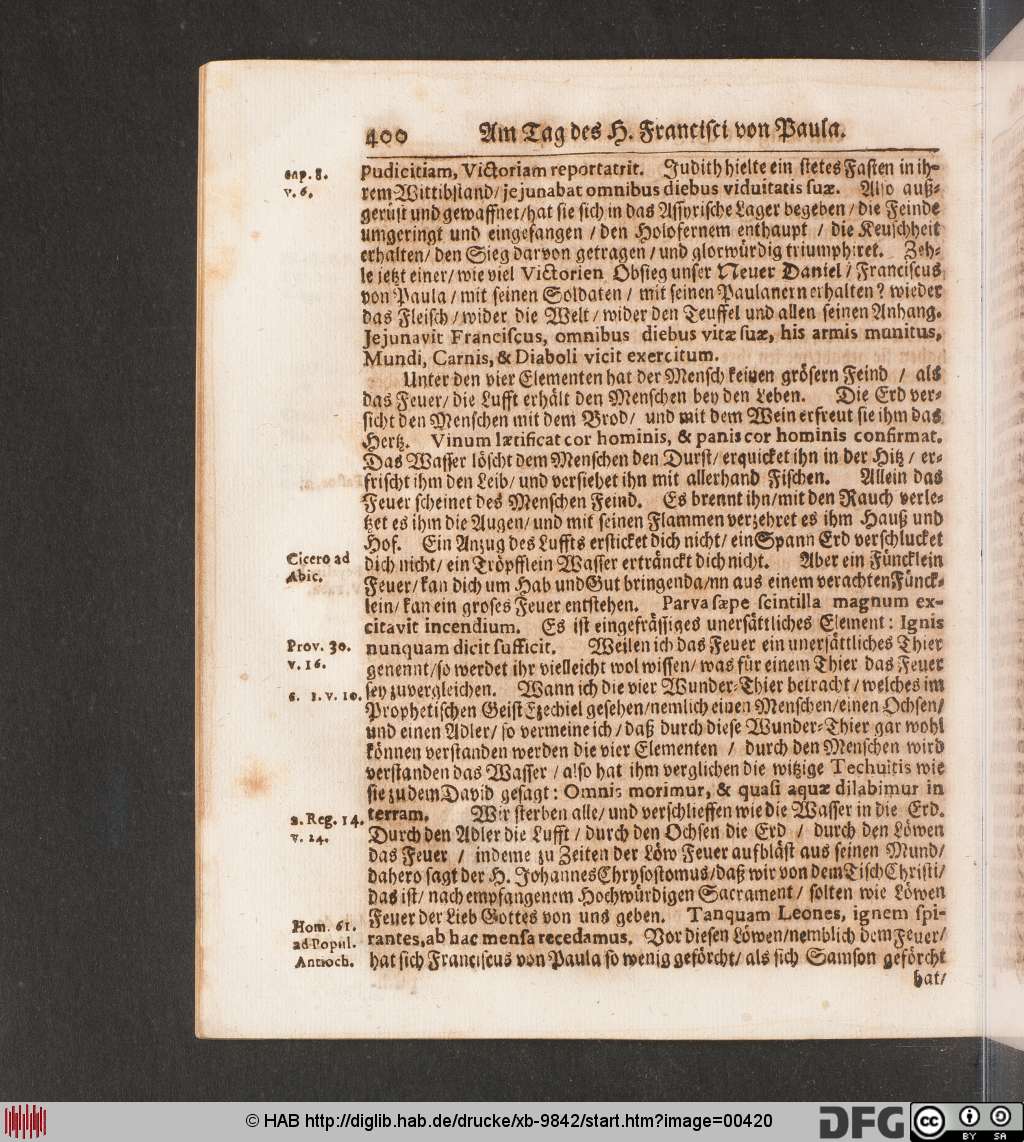 400 Am Tag des H. Francisci von Paula.
cap. 8.
v. 6.
pudicitiam, Victoriam reportatrit. Judith hielte ein stetes Fasten in ih-
rem Wittibstand/ jejunabat omnibus diebus viduitatis suæ. Also auß-
gerüst und gewaffnet/hat sie sich in das Assyrische Lager begeben / die Feinde
umgeringt und eingefangen / den Holofernem enthaupt / die Keuschheit
erhalten/ den Sieg darvon getragen / und glorwürdig triumphiret. Zeh-
le jetzt einer/ wie viel Victorien Obsieg unser Neuer Daniel / Franciscus
von Paula / mit seinen Soldaten / mit seinen Paulanern erhalten? wieder
das Fleisch / wider die Welt / wider den Teuffel und allen seinen Anhang.
Jejunavit Franciscus, omnibus diebus vitæ suæ, his armis munitus,
Mundi, Carnis, & Diaboli vicit exercitum.
Unter den vier Elementen hat der Mensch keinen grösern Feind / als
das Feuer/ die Lufft erhält den Menschen bey den Leben. Die Erd ver-
sicht den Menschen mit dem Brod/ und mit dem Wein erfreut sie ihm das
Hertz. Vinum lætificat cor hominis, & panis cor hominis confirmat.
Das Wasser löscht dem Menschen den Durst/ erquicket ihn in der Hitz / er-
frischt ihm den Leib/ und versiehet ihn mit allerhand Fischen. Allein das
Feuer scheinet des Menschen Feind. Es brennt ihn/mit den Rauch verle-
tzet es ihm die Augen/ und mit seinen Flammen verzehret es ihm Hauß und
Hof. Ein Anzug des Luffts ersticket dich nicht/ ein Spann Erd verschlucket
Cicero ad
Abic.
dich nicht/ ein Tröpfflein Wasser ertränckt dich nicht. Aber ein Füncklein
Feuer/ kan dich um Hab und Gut bringen da/nn aus einem verachten Fünck-
lein/ kan ein groses Feuer entstehen. Parva sæpe scintilla magnum ex-
citavit incendium. Es ist ein gefrässiges unersättliches Element: Ignis
Prov. 30.
v. 16.
nunquam dicit sufficit. Weilen ich das Feuer ein unersättliches Thier
genennt/so werdet ihr vielleicht wol wissen/ was für einem Thier das Feuer
6. 1. v. 10.
sey zuvergleichen. Wann ich die vier Wunder-Thier betracht / welches im
Prophetischen Geist Ezechiel gesehen/nemlich einen Menschen/einen Ochsen/
und einen Adler/ so vermeine ich / daß durch diese Wunder-Thier gar wohl
können verstanden werden die vier Elementen / durch den Menschen wird
verstanden das Wasser / also hat ihm verglichen die witzige Techuitis wie
sie zu dem David gesagt : Omnis morimur, & quasi aquæ dilabimur in
2. Reg. 14.
v. 24.
terram. Wir sterben alle/ und verschlieffen wie die Wasser in die Erd.
Durch den Adler die Lufft / durch den Ochsen die Erd / durch den Löwen
das Feuer / indeme zu Zeiten der Löw Feuer aufbläst aus seinen Mund/
dahero sagt der H. Johannes Chrysostomus/daß wir von dem Tisch Christi/
das ist/ nach empfangenem Hochwürdigen Sacrament / solten wie Löwen
Hom. 61.
ad Popul.
Antioch.
Feuer der Lieb Gottes von uns geben. Tanquam Leones, ignem spi-
rantes, ab hac mensa recedamus. Vor diesen Löwen/nemblich dem Feuer/
hat sich Franciscus von Paula so wenig geförcht/ als sich Samson geförcht
hat/
© HAB http://diglib.hab.de/drucke/xb-9842/start.htm?image=00420
DFG
CC
BY SA